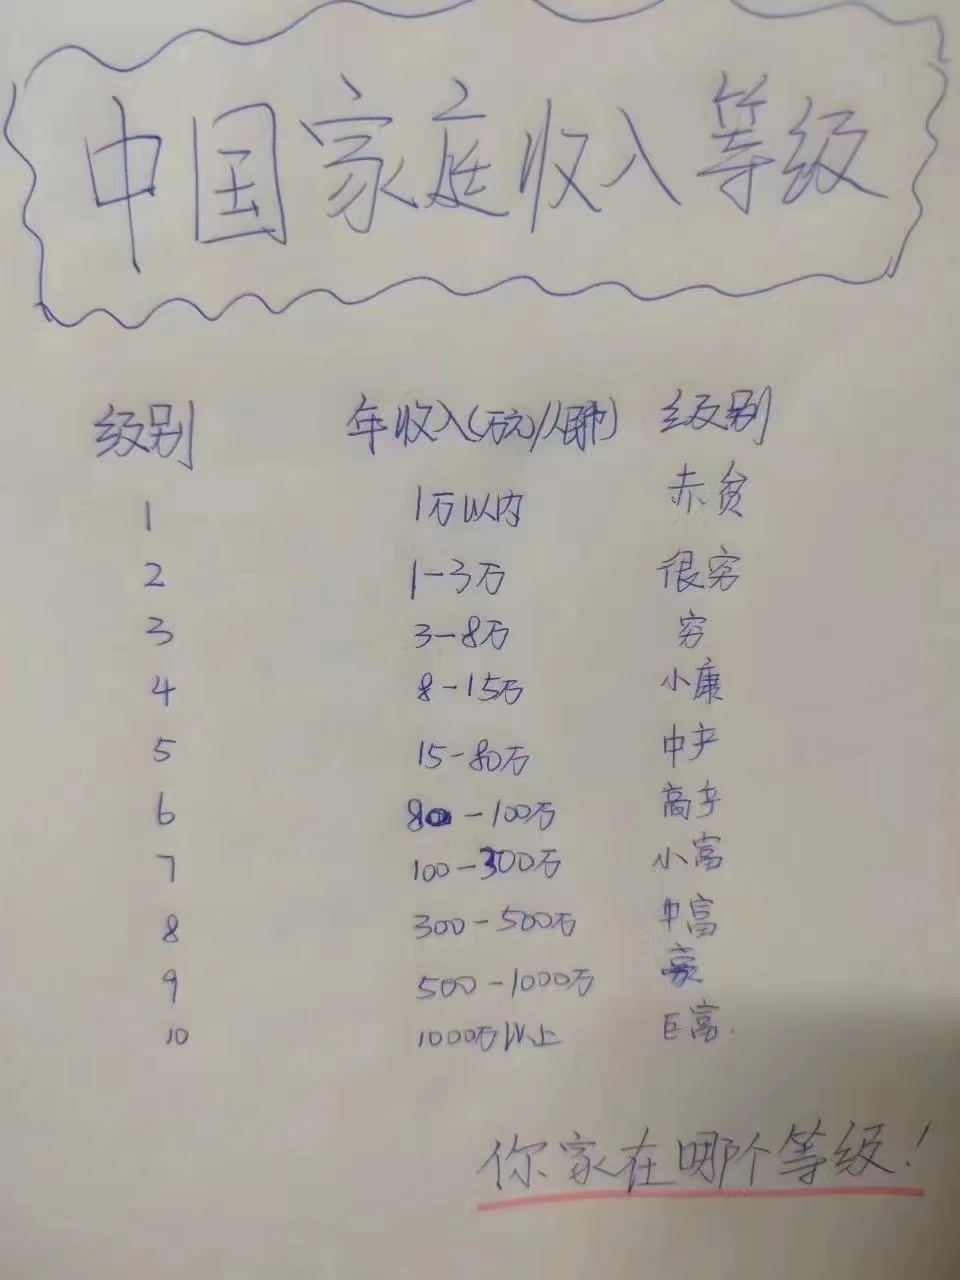 中国家庭收入等级
级别 年收入(万元/人民币) 级别
1 1万以内 赤贫
2 1-3万 很穷
3 3-8万 穷
4 8-15万 小康
5 15-80万 中产
6 80-100万 高产
7 100-300万 小富
8 300-500万 中富
9 500-1000万 豪
10 1000万以上 巨富.
你家在哪个等级!